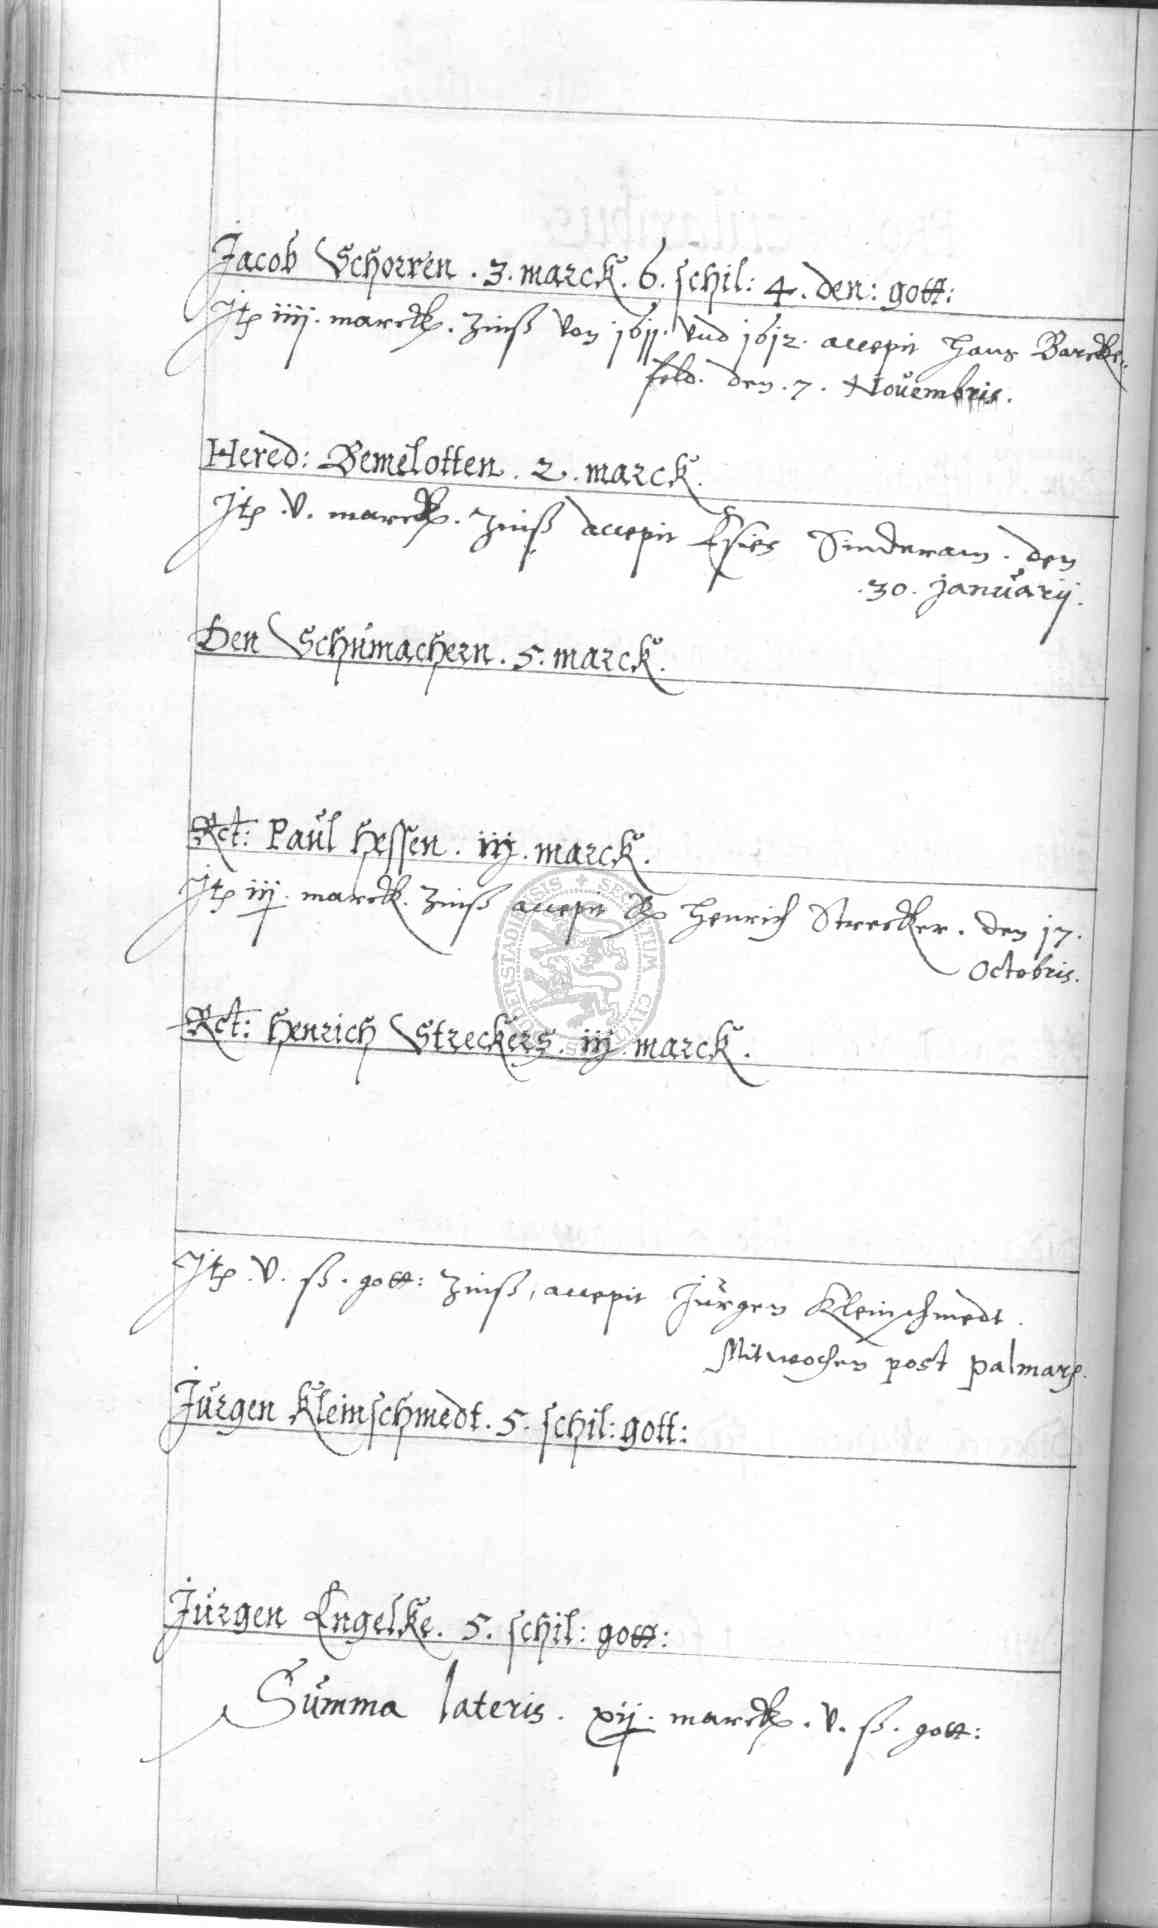 Jacob Schorren . 3 . marck . 6 . schil: 4 . den: gott:
Itꝑ iiij . marck . Zinß von 1611 . vnd 1612 . accepit Hans Barcke¬
feld . den . 7 . Nouembris .
Hered: Bemelotten . 2 . marck .
Itꝑ . V . marck . Zinß accepit Sinderam . den
. 30 . januarij .
Den Schumachern . 5 . marck .
Rct: Paul Hessen . iij . marck .
Itꝑ iij . marck . Zinß accepit Henrich Strecker . den 17 .
Octobris .
Rct: Henrich Streckers . iij . marck .
Itꝑ . V . ß . gott: Zinß , accepit Jurgen Kleinschmedt .
Mitwochen post palmarꝑ .
Jurgen Kleinschmedt . 5 . schil: gott:
Jurgen Engelke . 5 . schil: gott:
Summa lateris . xij . marck . v . ß . gott: